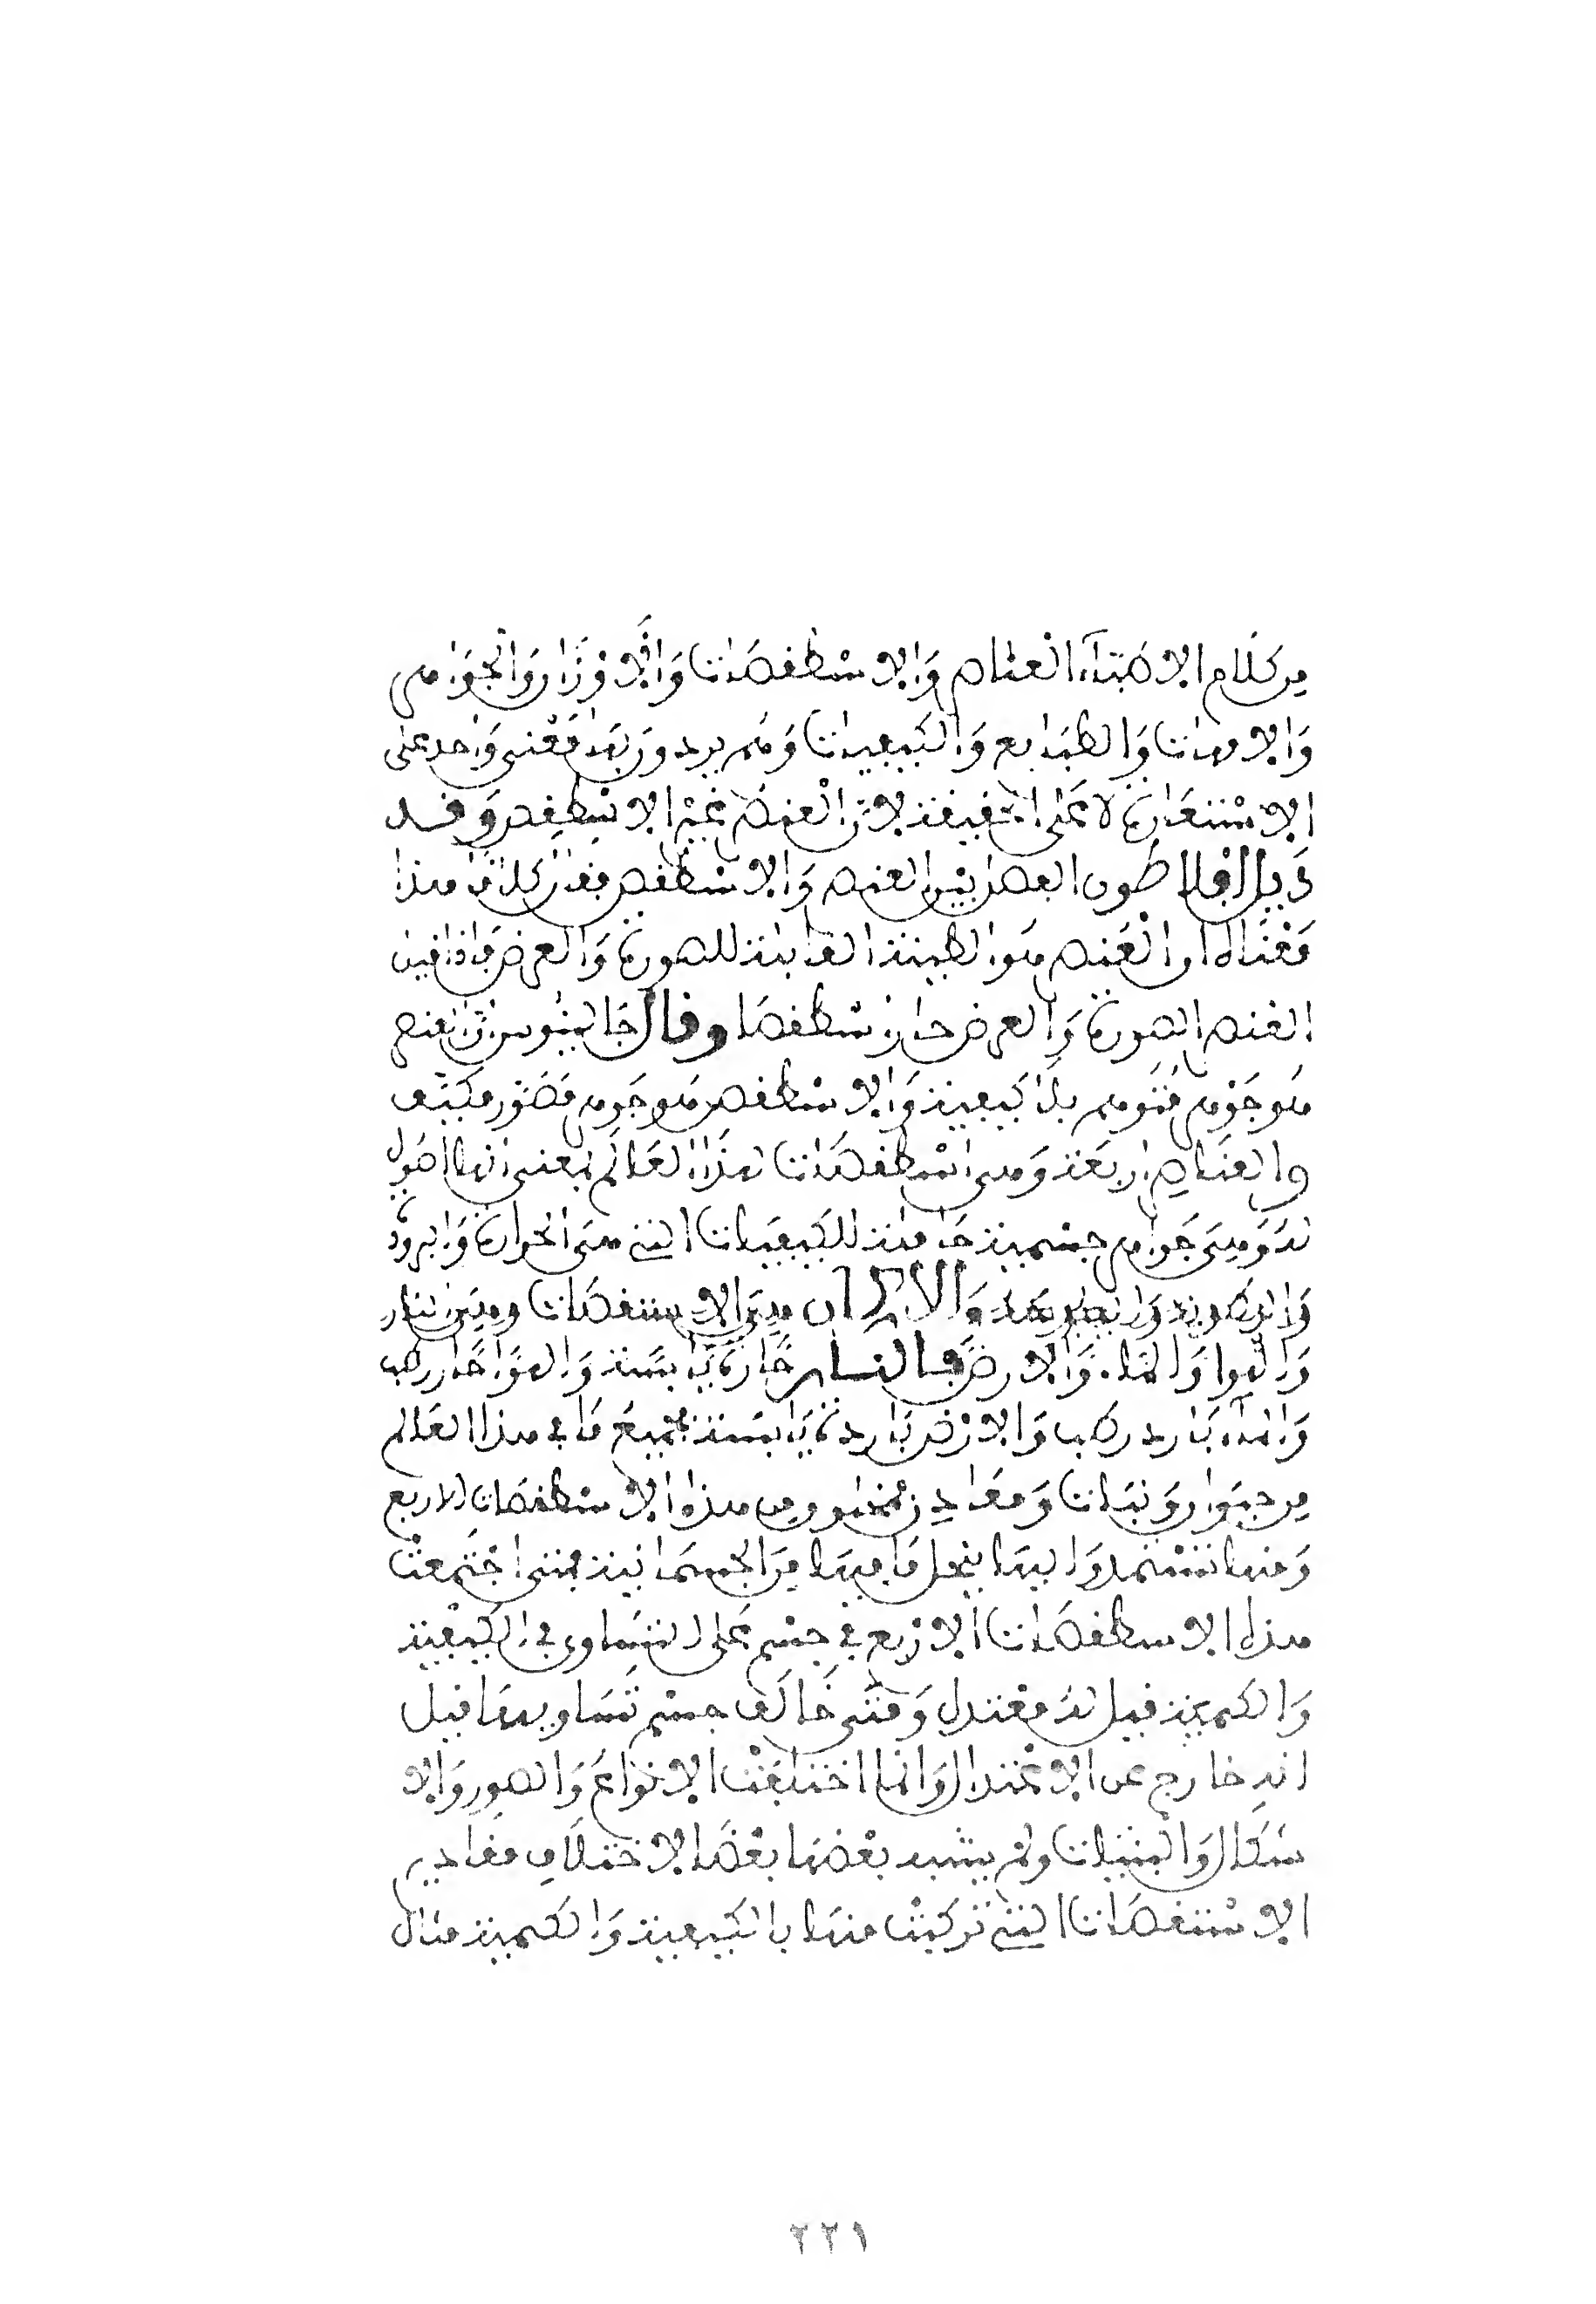 من كلام الاطباء العناصر والاسطقصات والاوزان والجواهر
والامهات والطبايع والكيفيات وهم يريدون بها معنى واحد على
الاستعارة لا على الحقيقة لان العنصر غير الاسطقص وقد
افلاطون الفصل بين العنصر والاسطقص فقال كلاما هذا
معناه ان العنصر هو الطينة القابلة للصورة والعرض فاذا قبل
العنصر الصورة والعرض صار اسطقصا وقال جالينوس ان العنصر
هو جوهر متوهم بلا كيفية والاسطقص هو جوهر مصور مكيف
والعناصر اربعة وهي اسطقصات لهذا العالم بمعنى انها اصول
له وهي جواهر جسمية حاملة للكيفيات التي هي الحرارة والبرودة
والرطوبة واليبوسة والاركان هي الاستقصات وهي النار
والهوا والماء والارض فالنار حارة يابسة والهوا حار رطب
والماء بارد رطب والارض باردة يابسة فجميع ما في هذا العالم
من حيوان ونبات ومعادن مخلوق من هذه الاسطقصات الاربع
ومنها تستمد واليها ينحل ما فيها من الجسمانية فمتى اجتمعت
هذه الاسطقصات الاربع في جسم على التساوي في الكيفية
والكمية قيل له معتدل ومتى خالف جسم تساويها قيل
انه خارج عن الاعتدال وانما اختلفت الانواع والصور والا
شكال والهيئات ولم يشبه بعضها بعضا لاختلاف مقادير
الاستقصات التي تركبت منها بالكيفية والكمية مثال
٢٢١